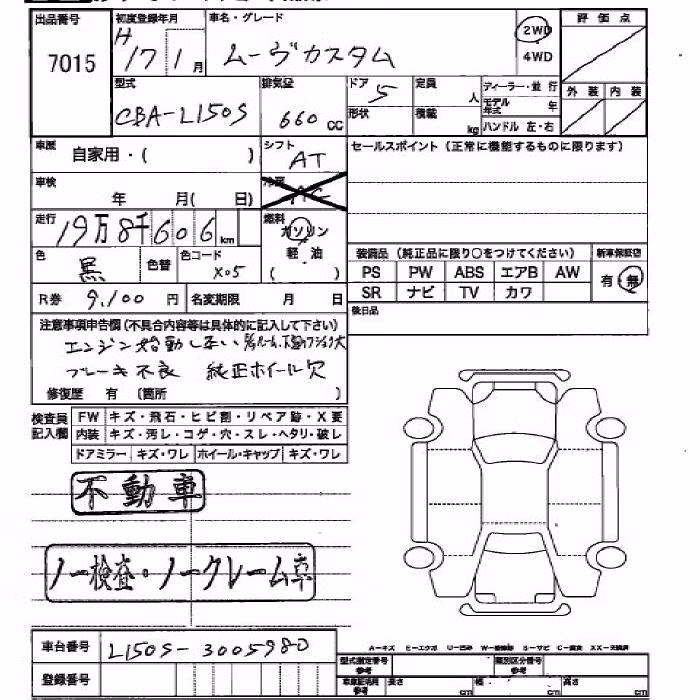 出品番号 初度登録年月 車名・グレード 評価点
7015 H17 1月 ムーヴカスタム 2WD
4WD
型式 排気量 ドア 5 定員 人 ディーラー・並行 外装 内装
CBA-L150S 660cc 形状 積載 kg モデル年式 年
ハンドル 左・右
車歴 自家用・( ) シフト AT セールスポイント(正常に機能するものに限ります)
車検 年 月( 日) 冷房 AC
走行 19万8千606km 燃料 ガソリン
軽油
( )
装備品(純正品に限り○をつけてください) 新車保証書
色 黒 色替 色コード X05 PS PW ABS エアB AW 有・無
R券 9,100円 名変期限 月 日 SR ナビ TV カワ
後日品
注意事項申告欄(不具合内容等は具体的に記入して下さい)
エンジン始動しない
ブレーキ不良 純正ホイール欠
修復歴 有 〔箇所 〕
検査員記入欄 FW キズ・飛石・ヒビ割・リペア跡・X要
内装 キズ・汚レ・コゲ・穴・スレ・ヘタリ・破レ
ドアミラー キズ・ワレ ホイール・キャップ キズ・ワレ
不動車
ノー検査・ノークレーム車
車台番号 L150S-3005980
A-キズ E-エクボ U-凹み W-補修跡 S-サビ C-腐食 XX-交換済
登録番号 型式指定番号 参考 類別区分番号 参考
車庫証明用 参考 長さ cm 幅 cm 高さ cm